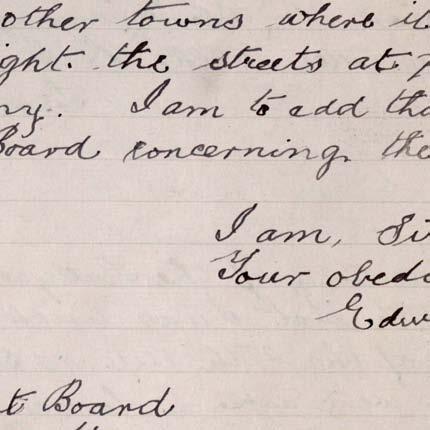 other towns where it
ight the streets at
I am to add tha
Board concerning the
I am, Si
Your obedi
Edw
t Board